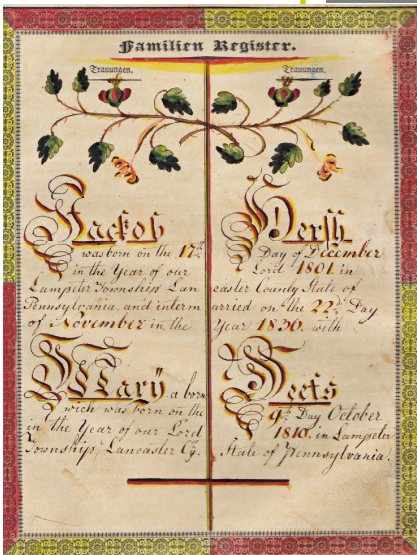 Familien Register.
Trauungen. Trauungen.
Jackob Hersh
was born on the 17th Day of December
in the Year of our Lord 1801. in
Lampeter Township Lancaster County State of
Pennsylvania, and intermarried on the 22d Day
of November in the Year with
Mary, a born
wich was born on the 9th Day October
in the Year of our Lord 1810. in Lampeter
Township, Lancaster Cy. State of Pennsylvania.